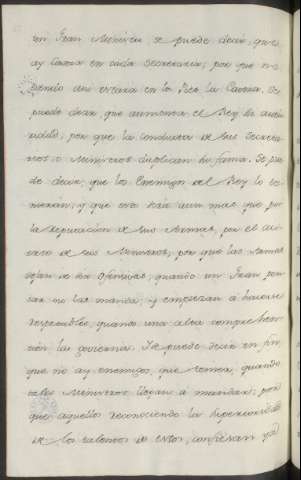 un Gran Ministro, se puede decir, que
ay Cavera en cada Secretaria; por que
en los Pies la Cavera. Se
puede decir, que aumenta el Rey su auto-
ridad, por que la conducta de sus Secreta-
rios o Ministros duplican su fama. Se pue-
de decir, que los Enemigos del Rey lo te-
meràn; y que esto hàn aun mas que por
la reputacion de sus Armas, por el
de sus Ministros; por que las Armas
dejan de ser ofensivas, quando un Gran pen-
sar no las manda; y empiezan à hacerse
respetables, quando una alta comprehen-
cion las govierna. Se puede decir en fin,
que no ay enemigos, que temer, quando
tales Ministros llegan à mandar; por
que aquellos reconociendo la superioridad
de los talentos de estos, confiesan ya